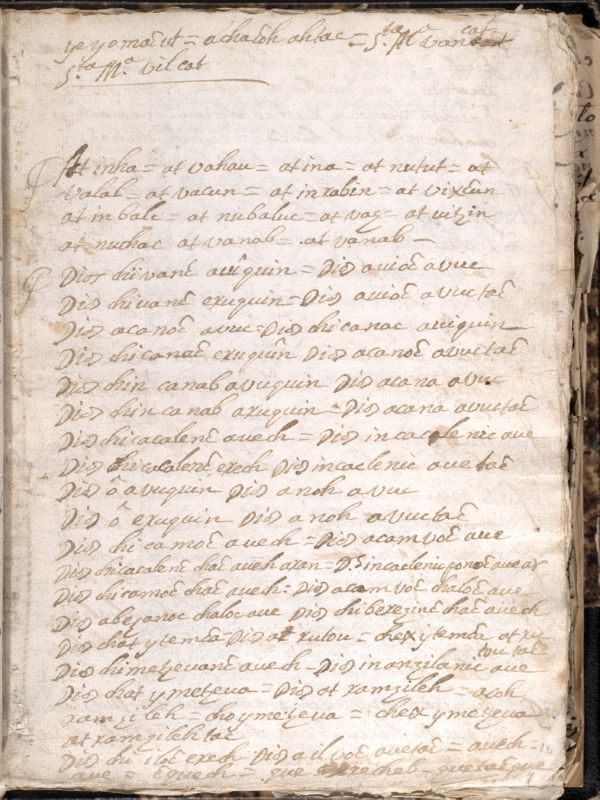 ye yo macut = achacoh ahtac = S.ta M.a van cat
S.ta M.a vilcat
At inha = at vahau = at ina = at nutut = at
valal = at vacun = at in rabin = at vixcun
at in balc = at nubaluc = at vaz = at uitzin
at nuchac at vanab = at vanab —
Dios chi vanc auiquin = Dios auioc avuc
Dios chi vanc eruquin = Dios auioc avuctac
Dios acanoc avuc = Dios chi canac auiquin
Dios chi canac eruquin Dios acanoc avuctac
Dios chin canab avuquin Dios acana avuc
Dios chin canab aruquin = Dios acana avuctac
Dios chi cacalenc auech = Dios in cacalenic aue
Dios chi cacalenc erech Dios incaclenic aue tac
Dios ô avuquin Dios anoh avuc
Dios ô eruquin Dios anoh avuctac
Dios chi camoc auech = Dios acamvoc aue
Dios chi cacalenc chac auech aran = Ds incaclenic
Dios chi camoc chac auech = Dios acamvoc chaloc aue
Dios abezanoc chaloc aue Dios chi berezinc chac auech
Dios chat ytemca Dios at rutou = chex ytemca at ru
toutac
Dios chi metzevanc auech = Dios inanzilanic aue
Dios chat ymetzeva = Dios at ramzileh = acoh
ramzileh = cho ymetzeva = chex ymetzeva
at ramzileh tac
Dios chi iloc erech Dios ailvoc auetac = auech =
aue = equech = que = recheb = quetacque
18